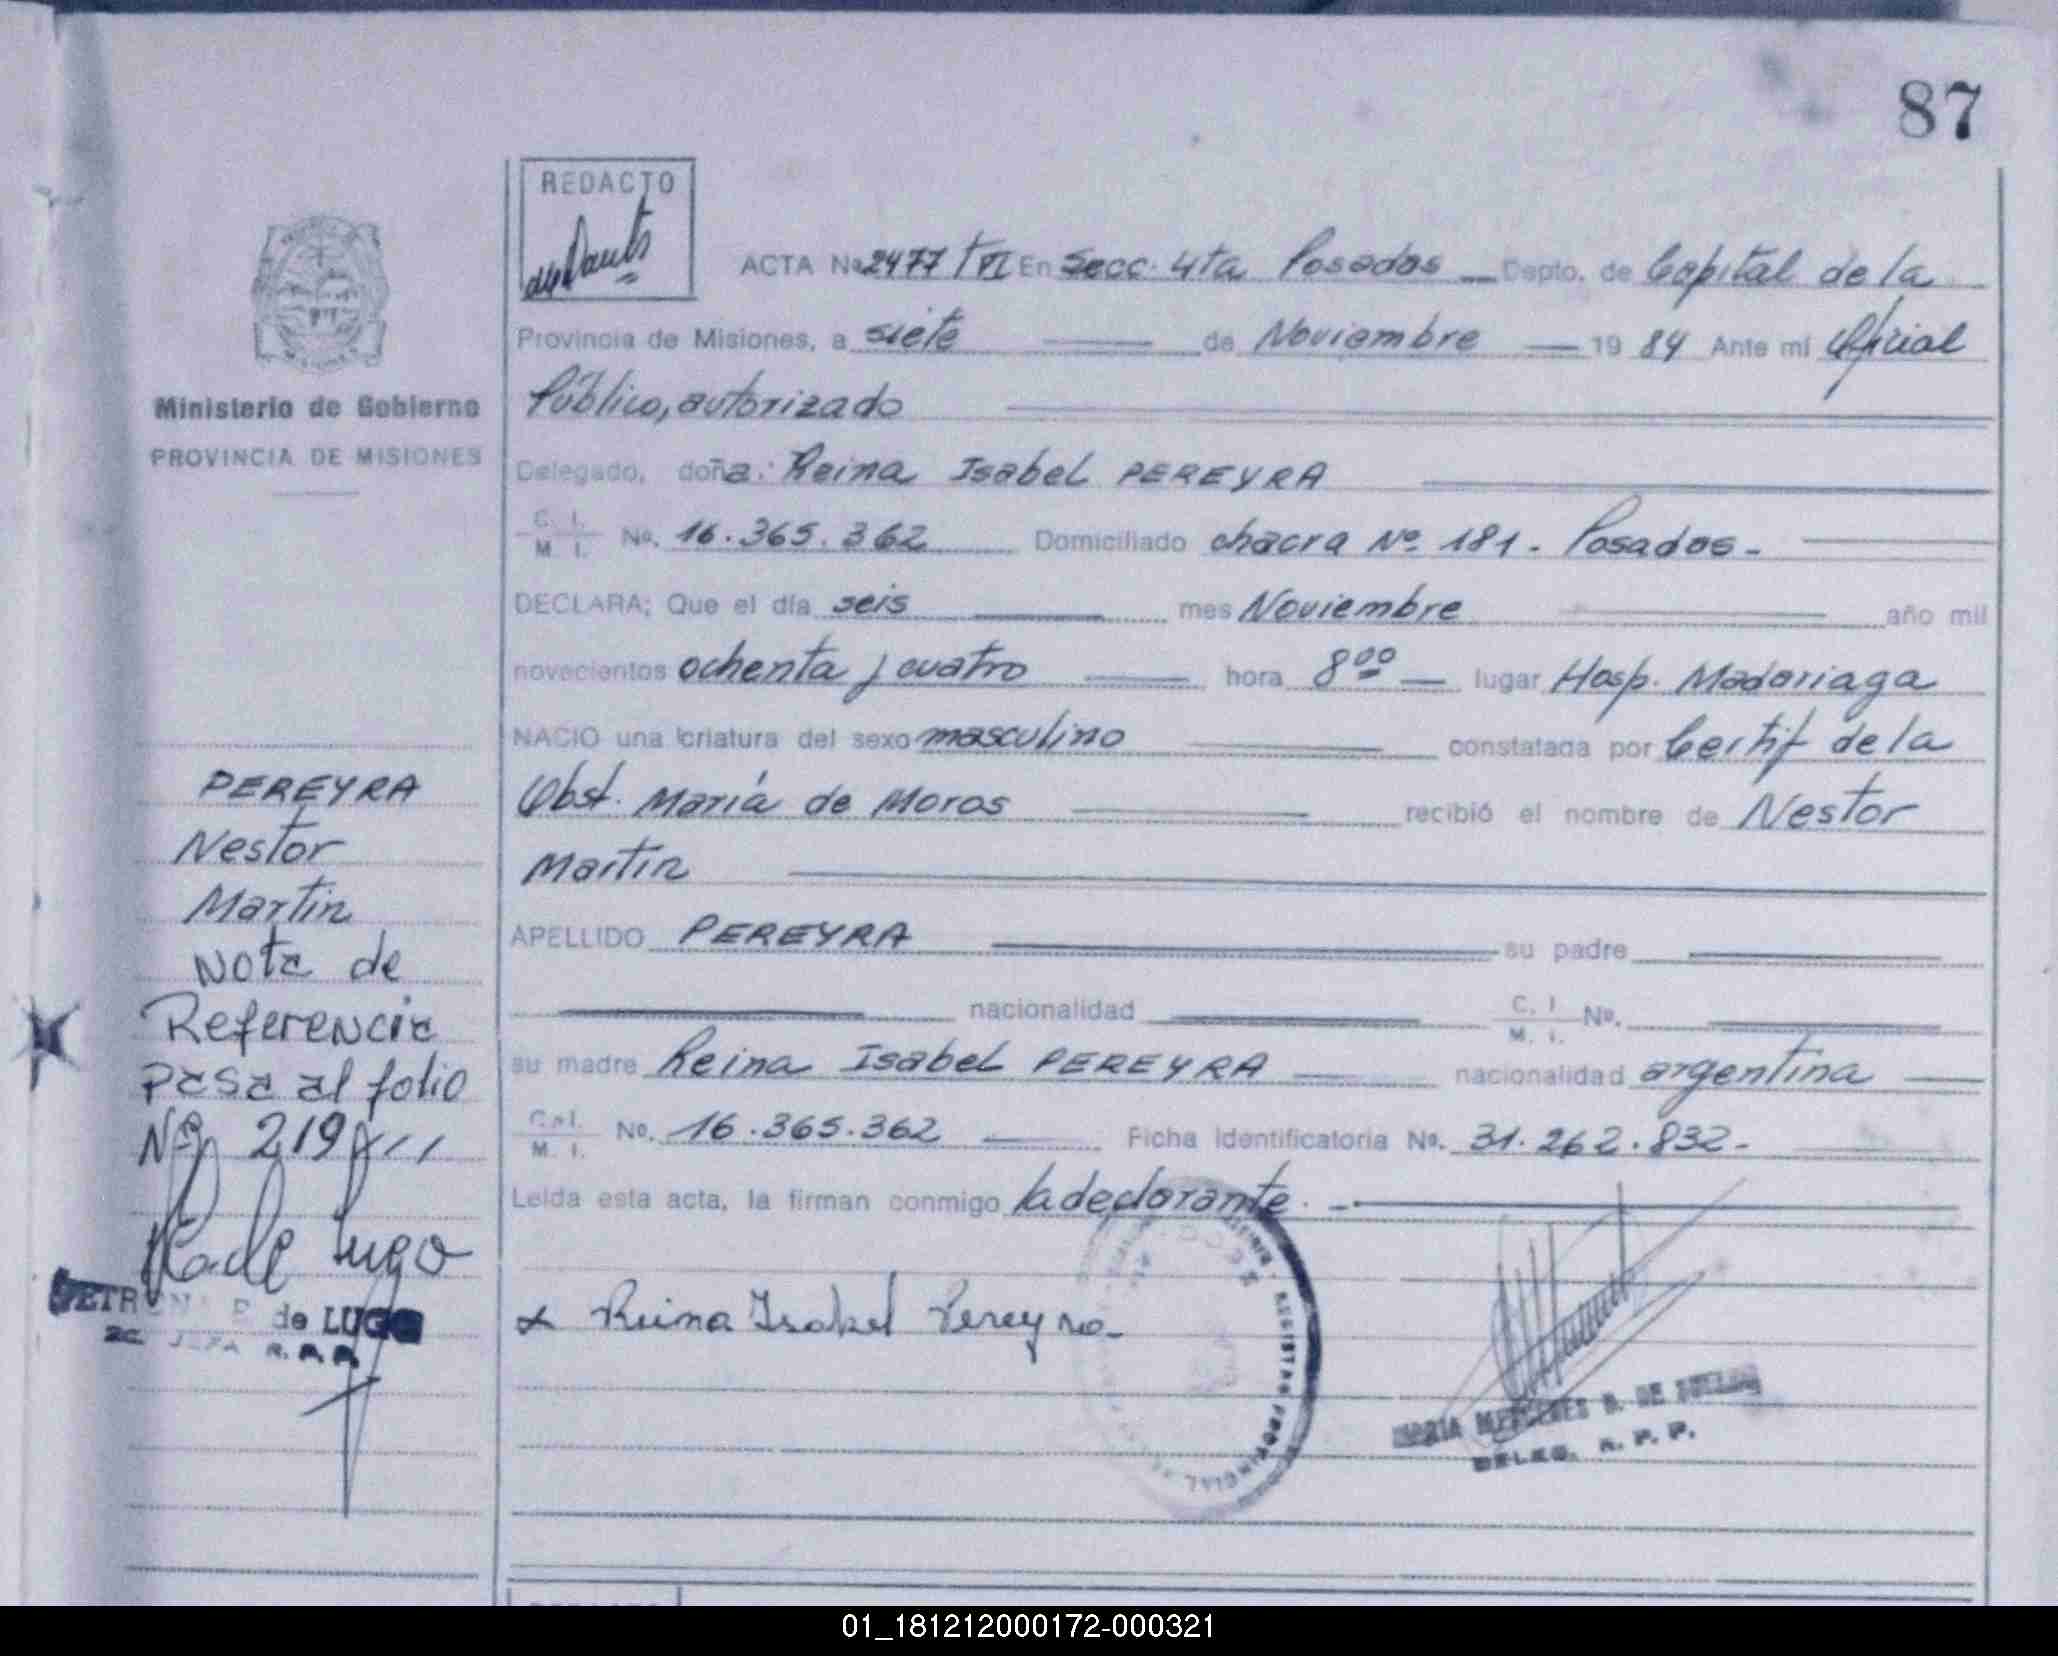 87
REDACTO
ACTA No 2477/VI En Secc. 4ta Posadas Depto. de Capital de la
Provincia de Misiones, a siete de Noviembre 1984 Ante mi Oficial
Público, autorizado
Delegado, doña: Reina Isabel PEREYRA
C. I. M. I. No. 16.365.362 Domiciliado chacra Nº 181 - Posadas -
DECLARA; Que el día seis mes Noviembre año mil
novecientos ochenta y cuatro hora 8⁰⁰ lugar Hosp. Madariaga
NACIO una criatura del sexo masculino constatada por Certif de la
Obst. María de Moros recibió el nombre de Nestor
Martin
APELLIDO PEREYRA su padre
nacionalidad C. I. M. I. Nº.
su madre Reina Isabel PEREYRA nacionalidad argentina
C. I. M. I. No. 16.365.362 Ficha Identificatoria No. 31.262.832-
Leída esta acta, la firman conmigo la declarante.
Reina Isabel Pereyra
REGISTRO PROVINCIAL
MARIA MERCEDES B. DE
DELEG. R. P. P.
Ministerio de Gobierno
PROVINCIA DE MISIONES
PEREYRA
Nestor
Martin
Nota de
Referencia
Pasa al folio
Nº 219
de Lugo
de LUGO
01_181212000172-000321